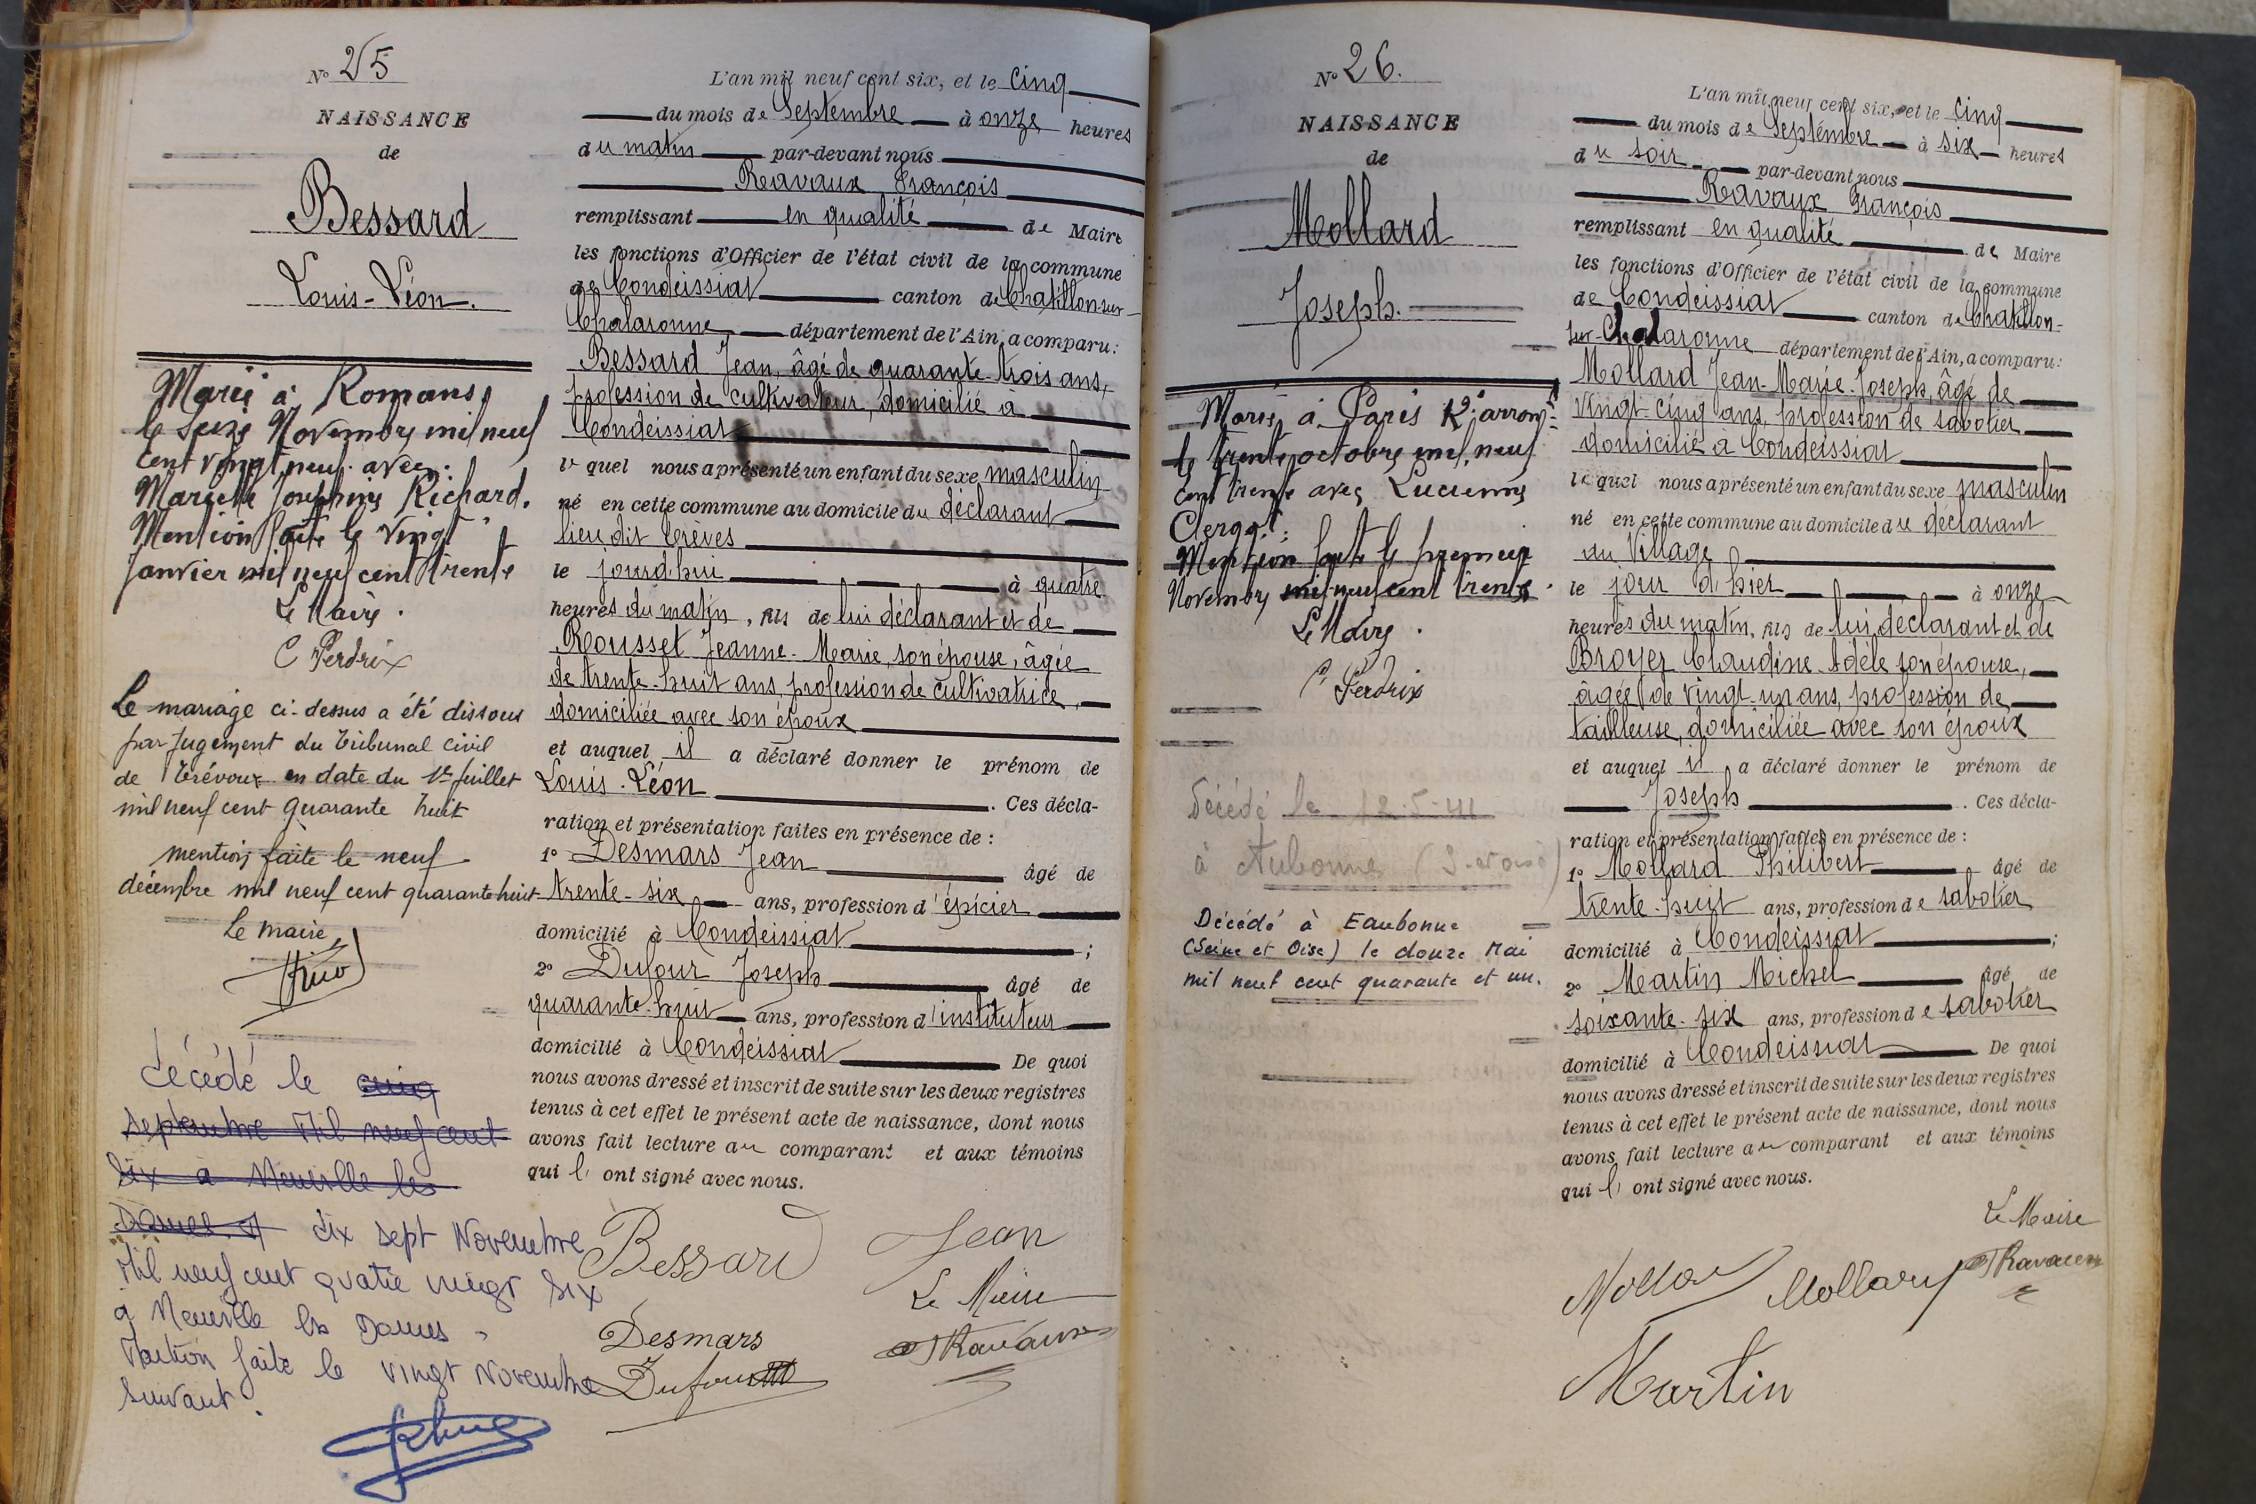 N° 25
NAISSANCE
de
Bessard
Louis-Léon.
Marié à Romans,
le seize Novembre mil neuf
cent vingt neuf avec
Marcelle Joséphine Richard.
Mention faite le vingt
Janvier mil neuf cent trente
Le Maire.
C Perdrix
Le mariage ci-dessus a été dissous
par jugement du Tribunal civil
de Trévoux en date du 1er juillet
mil neuf cent quarante huit
mention faite le neuf
décembre mil neuf cent quarante huit
Le maire,
décédé le cinq
septembre mil neuf cent
six à Neuville les
Dames dix sept Novembre
mil neuf cent quatre vingt six
à Neuville les Dames.
Mention faite le vingt Novembre
suivant.
L'an mil neuf cent six, et le cinq
du mois de Septembre à onze heures
du matin par-devant nous
Ravaux François
remplissant en qualité de Maire
les fonctions d'Officier de l'état civil de la commune
de Condeissiat canton de Chatillon-sur-
Chalaronne département de l'Ain, a comparu:
Bessard Jean, âgé de quarante-trois ans,
profession de cultivateur, domicilié à
Condeissiat
lequel nous a présenté un enfant du sexe masculin
né en cette commune au domicile du déclarant
lieu dit Crèves
le jourd'hui à quatre
heures du matin, fils de lui déclarant et de
Rousset Jeanne-Marie, son épouse, âgée
de trente-huit ans, profession de cultivatrice,
domiciliée avec son époux
et auquel il a déclaré donner le prénom de
Louis-Léon. Ces décla-
ration et présentation faites en présence de:
1° Desmars Jean âgé de
trente-six ans, profession d'épicier
domicilié à Condeissiat;
2° Dufour Joseph âgé de
quarante-huit ans, profession d'instituteur
domicilié à Condeissiat De quoi
nous avons dressé et inscrit de suite sur les deux registres
tenus à cet effet le présent acte de naissance, dont nous
avons fait lecture au comparant et aux témoins
qui l'ont signé avec nous.
Bessard Jean
Le Maire
Desmars Ravaux
Dufour
N° 26.
NAISSANCE
de
Mollard
Joseph.
Marié à Paris 12e arront
le trente octobre mil neuf
cent trente avec Lucienne
Clergot.
Mention faite le premier
Novembre mil neuf cent trente.
Le Maire.
C. Perdrix
Décédé le 12-5-41
à Aubonne (S-et-oise)
Décédé à Eaubonne
(Seine et Oise) le douze Mai
mil neuf cent quarante et un.
L'an mil neuf cent six, et le cinq
du mois de Septembre à six heures
du soir par-devant nous
Ravaux François
remplissant en qualité de Maire
les fonctions d'Officier de l'état civil de la commune
de Condeissiat canton de Chatillon-
sur-Chalaronne département de l'Ain, a comparu:
Mollard Jean-Marie-Joseph, âgé de
vingt-cinq ans, profession de sabotier
domicilié à Condeissiat
lequel nous a présenté un enfant du sexe masculin
né en cette commune au domicile du déclarant
au Village
le jour d'hier à onze
heures du matin, fils de lui déclarant et de
Broyer Claudine-Adèle son épouse,
âgée de vingt-un ans, profession de
tailleuse, domiciliée avec son époux
et auquel il a déclaré donner le prénom de
Joseph. Ces décla-
ration et présentation faites en présence de:
1° Mollard Philibert âgé de
trente-huit ans, profession de sabotier
domicilié à Condeissiat;
2° Martin Michel âgé de
soixante-six ans, profession de sabotier
domicilié à Condeissiat De quoi
nous avons dressé et inscrit de suite sur les deux registres
tenus à cet effet le présent acte de naissance, dont nous
avons fait lecture au comparant et aux témoins
qui l'ont signé avec nous.
Le Maire
Mollard Mollard Ravaux
Martin